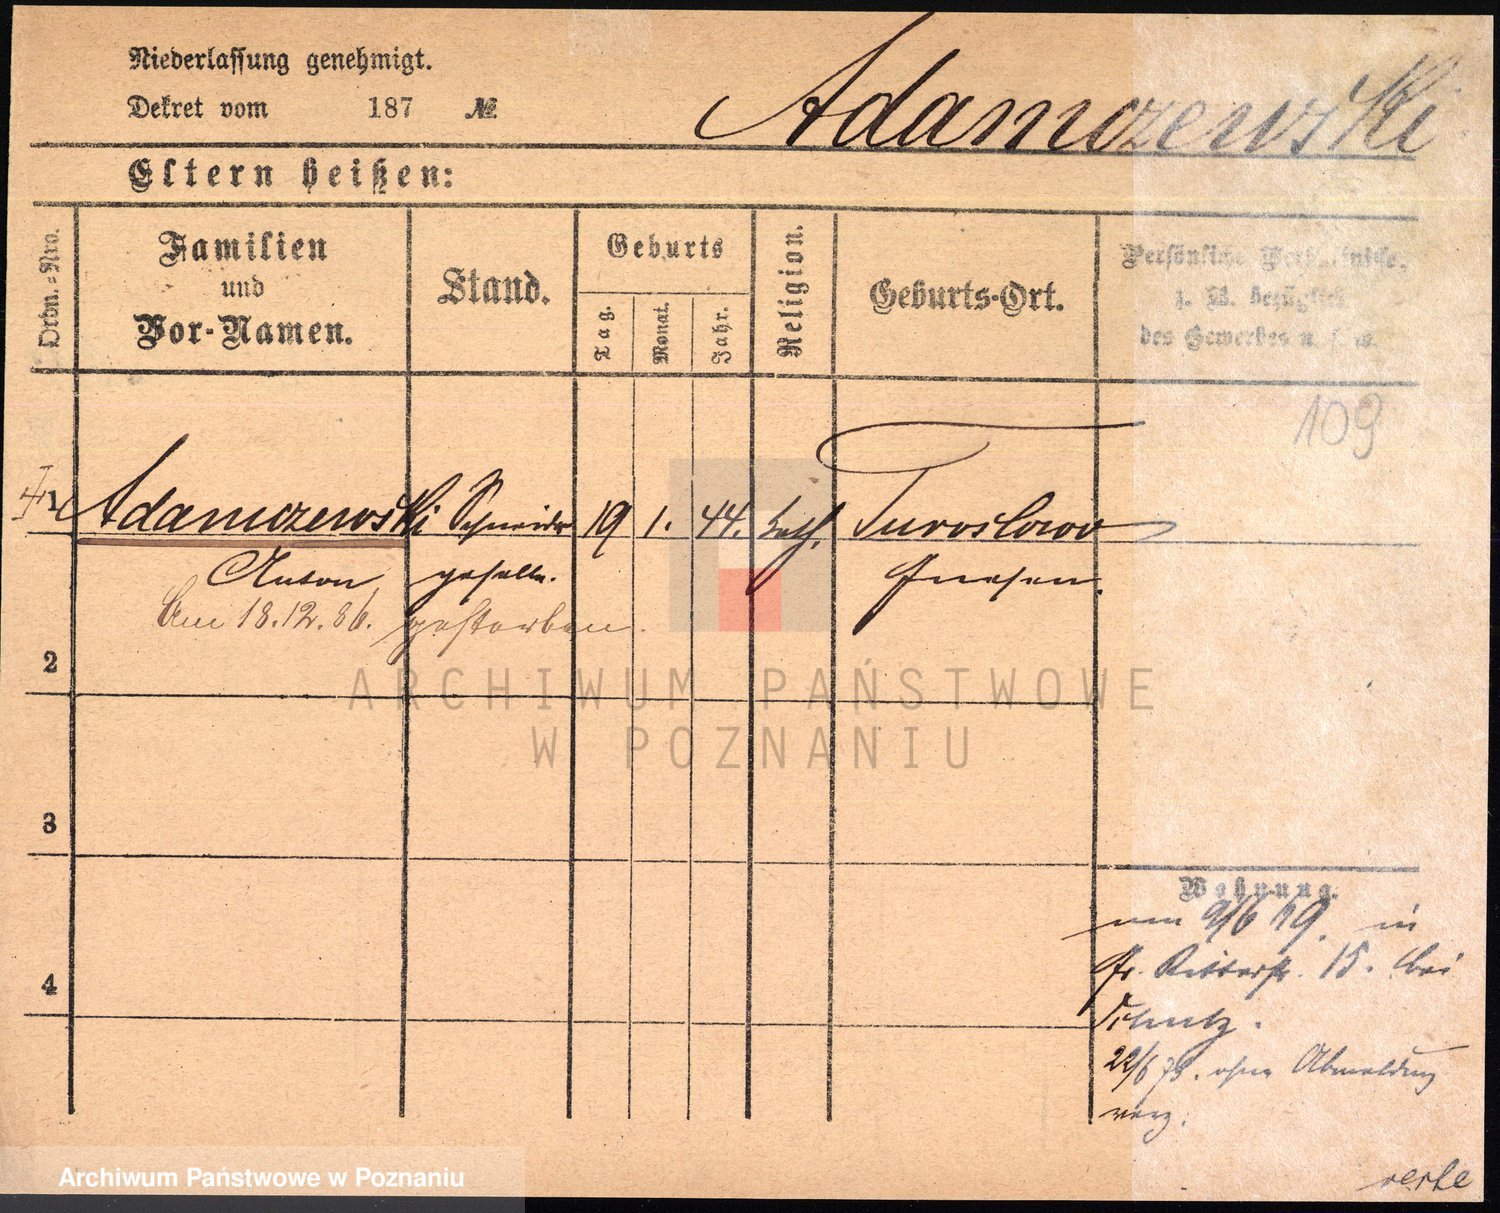 Niederlassung genehmigt.
Dekret vom 187 №
Adamczewski
Eltern heißen:
Ordn.-Nro.
Familien
und
Vor-Namen.
Stand.
Geburts
Tag.
Monat.
Jahr.
Religion.
Geburts-Ort.
Persönliche Verhältnisse,
z. B. bezüglich
des Gewerbes u. s. w.
109
1
Adamczewski Schneider 19 1. 44. kath. Turoslowo
Anton geselle. Gnesen.
Am 18.12.86. gestorben.
2
ARCHIWUM PAŃSTWOWE
W POZNANIU
3
Wohnung.
9/6 79. in
Gr. Ritterstr. 15. bei
4
22/6 79. ohne Abmeldung
verz.
verte
Archiwum Państwowe w Poznaniu